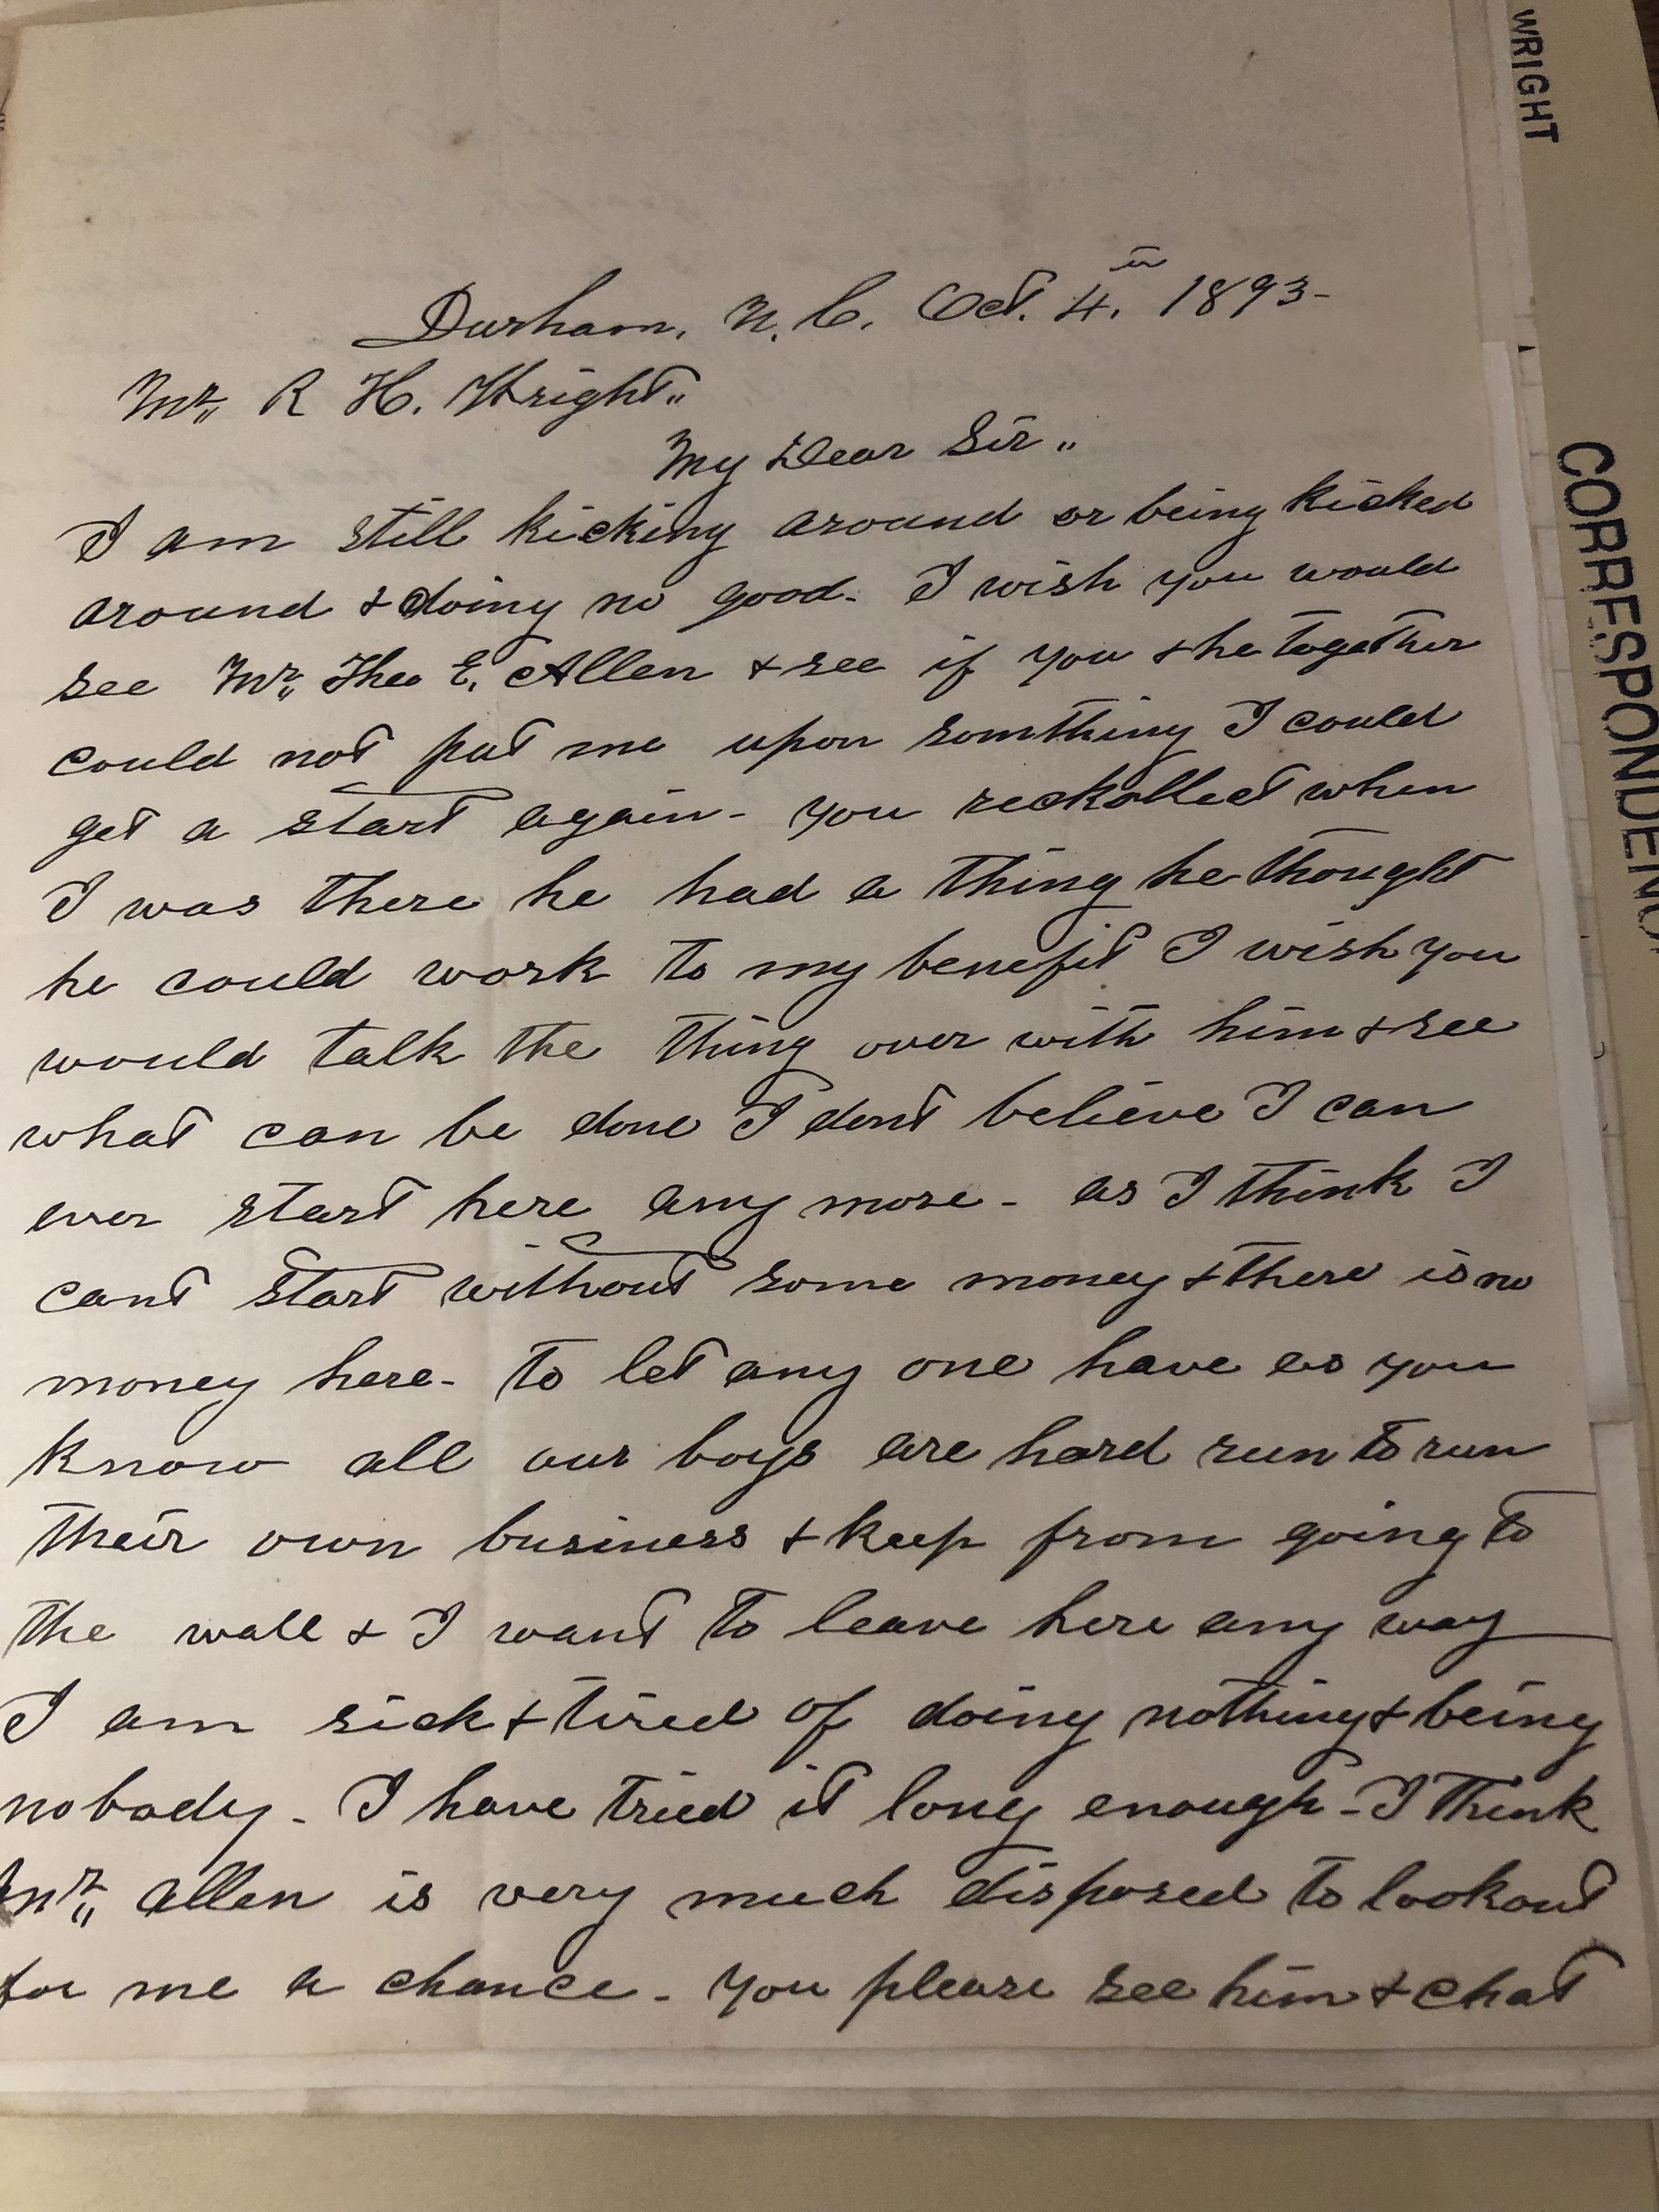 Durham, N. C. Oct. 4th 1893-
Mr. R H. Wright.
My Dear Sir.
I am still kicking around or being kicked
around & doing no good. I wish you would
see Mr. Theo E. Allen & see if you & he together
could not put me upon somthing I could
get a start again - you reckollect when
I was there he had a thing he thought
he could work to my benefit I wish you
would talk the thing over with him & see
what can be done I dont believe I can
ever start here any more - as I think I
cant start without some money & there is no
money here - to let any one have as you
know all our boys are hard run to run
their own business & keep from going to
the wall & I want to leave here any way
I am sick & tired of doing nothing & being
nobody - I have tried it long enough - I think
Mr. Allen is very much disposed to lookout
for me a chance - you please see him & chat
WRIGHT
CORRESPONDENC